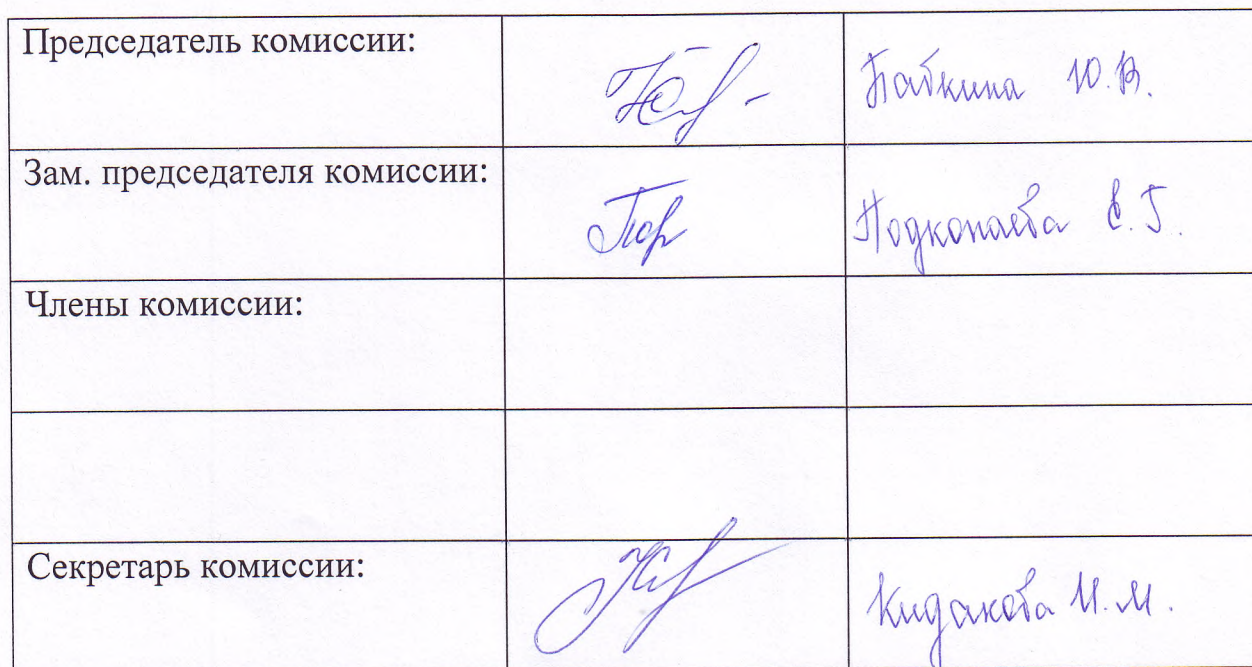 Председатель комиссии: Бабкина Ю.В.
Зам. председателя комиссии: Подкопаева Е.Г.
Члены комиссии:
Секретарь комиссии: Кидакова И.М.